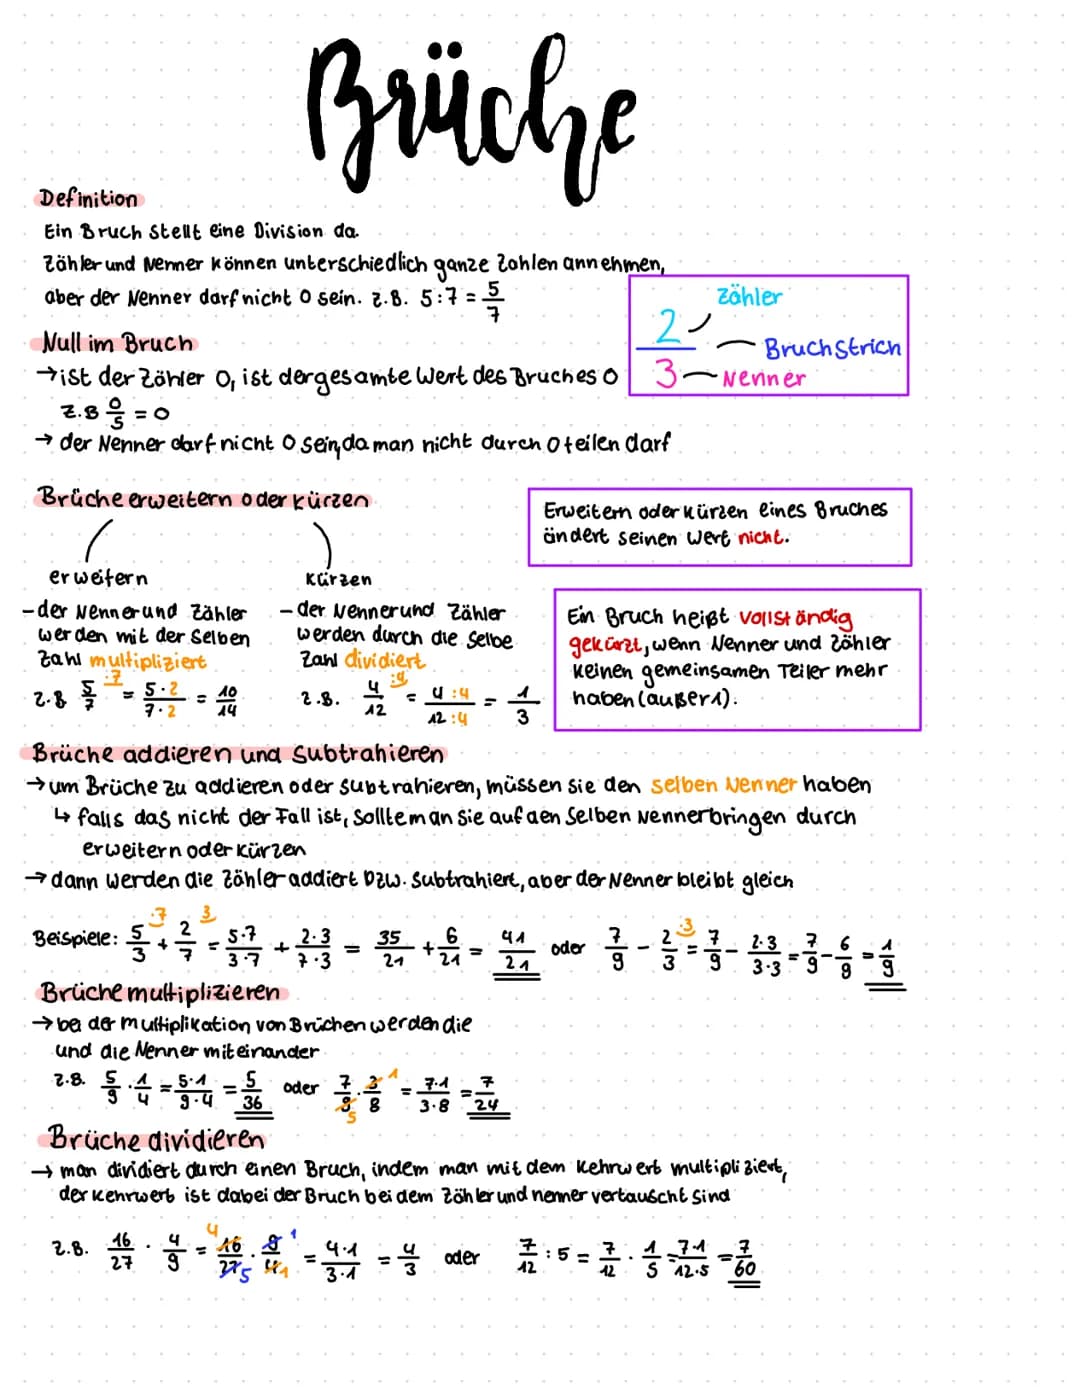 Brüche
Definition
Ein Bruch stellt eine Division da.
Zähler und Nenner können unterschiedlich ganze Zahlen annehmen,
aber der Nenner darf nicht 0 sein. z.B. 5:7 = 5/7
Zähler
2/3
Bruchstrich
Nenner
Null im Bruch
→ ist der Zähler 0, ist der gesamte Wert des Bruches 0
z.B 0/5 = 0
→ der Nenner darf nicht 0 sein, da man nicht durch 0 teilen darf
Brüche erweitern oder kürzen
Erweitern oder kürzen eines Bruches
ändert seinen Wert nicht.
erweitern
- der Nenner und Zähler
werden mit der selben
Zahl multipliziert
:7
z.B 5/7 = 5·2/7·2 = 10/14
kürzen
- der Nenner und Zähler
werden durch die selbe
Zahl dividiert
:4
z.B. 4/12 = 4:4/12:4 = 1/3
Ein Bruch heißt vollständig
gekürzt, wenn Nenner und Zähler
keinen gemeinsamen Teiler mehr
haben (außer 1).
Brüche addieren und subtrahieren
→ um Brüche zu addieren oder subtrahieren, müssen sie den selben Nenner haben
↳ falls das nicht der Fall ist, sollte man sie auf den selben Nenner bringen durch
erweitern oder kürzen
→ dann werden die Zähler addiert bzw. subtrahiert, aber der Nenner bleibt gleich
·7 3 ·3
Beispiele: 5/3 + 2/7 = 5·7/3·7 + 2·3/7·3 = 35/21 + 6/21 = 41/21 oder 7/9 - 2/3 = 7/9 - 2·3/3·3 = 7/9 - 6/9 = 1/9
Brüche multiplizieren
→ bei der multiplikation von Brüchen werden die
und die Nenner miteinander
z.B. 5/9 · 1/4 = 5·1/9·4 = 5/36 oder 7/9 · 3/8 = 7·1/3·8 = 7/24
Brüche dividieren
→ man dividiert durch einen Bruch, indem man mit dem Kehrwert multipliziert,
der Kehrwert ist dabei der Bruch bei dem Zähler und nenner vertauscht sind
z.B. 16/27 · 4/9 = 16/27 · 9/4 = 4·1/3·1 = 4/3 oder 7/12 : 5 = 7/12 · 1/5 = 7·1/12·5 = 7/60